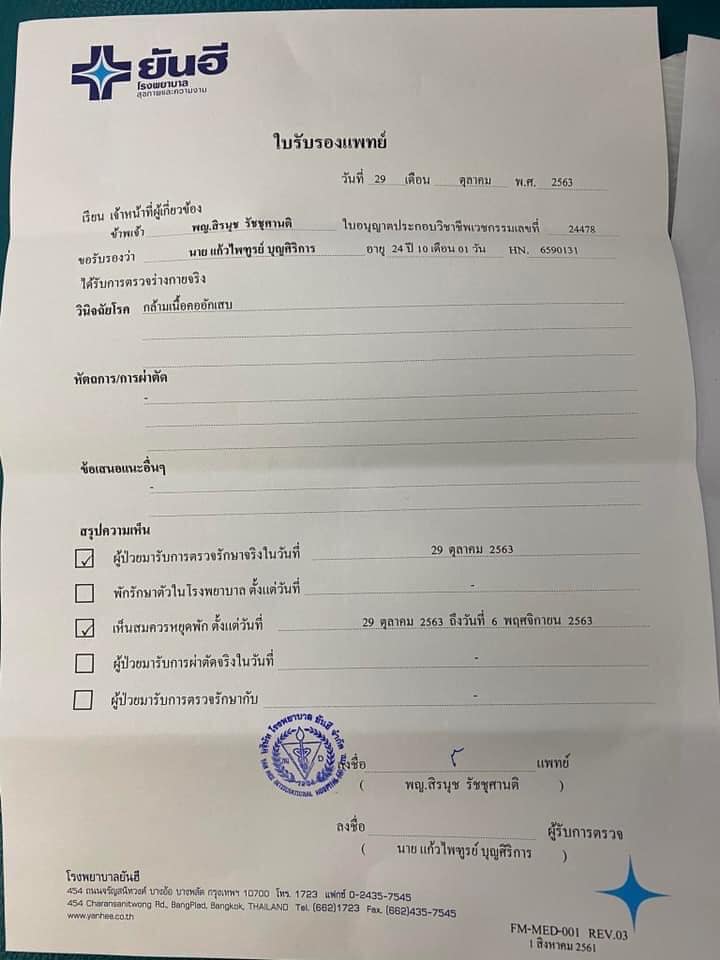 ยันฮี
โรงพยาบาล
สุขภาพและความงาม
ใบรับรองแพทย์
วันที่ 29 เดือน ตุลาคม พ.ศ. 2563
เรียน เจ้าหน้าที่ผู้เกี่ยวข้อง
ข้าพเจ้า พญ.สิรนุช รัชชุศานติ ใบอนุญาตประกอบวิชาชีพเวชกรรมเลขที่ 24478
ขอรับรองว่า นาย แก้วไพฑูรย์ บุญศิริการ อายุ 24 ปี 10 เดือน 01 วัน HN. 6590131
ได้รับการตรวจร่างกายจริง
วินิจฉัยโรค กล้ามเนื้อคออักเสบ
หัตถการ/การผ่าตัด
-
ข้อเสนอแนะอื่นๆ
-
สรุปความเห็น
ผู้ป่วยมารับการตรวจรักษาจริงในวันที่ 29 ตุลาคม 2563
พักรักษาตัวในโรงพยาบาล ตั้งแต่วันที่ -
เห็นสมควรหยุดพัก ตั้งแต่วันที่ 29 ตุลาคม 2563 ถึงวันที่ 6 พฤศจิกายน 2563
ผู้ป่วยมารับการผ่าตัดจริงในวันที่ -
ผู้ป่วยมารับการตรวจรักษากับ -
บริษัท โรงพยาบาล ยันฮี จำกัด
ลงชื่อ แพทย์
( พญ.สิรนุช รัชชุศานติ )
ลงชื่อ ผู้รับการตรวจ
( นาย แก้วไพฑูรย์ บุญศิริการ )
โรงพยาบาลยันฮี
454 ถนนจรัญสนิทวงศ์ บางอ้อ บางพลัด กรุงเทพฯ 10700 โทร. 1723 แฟกซ์ 0-2435-7545
454 Charansanitwong Rd., BangPlad, Bangkok, THAILAND Tel. (662)1723 Fax. (662)435-7545
www.yanhee.co.th
FM-MED-001 REV.03
1 สิงหาคม 2561